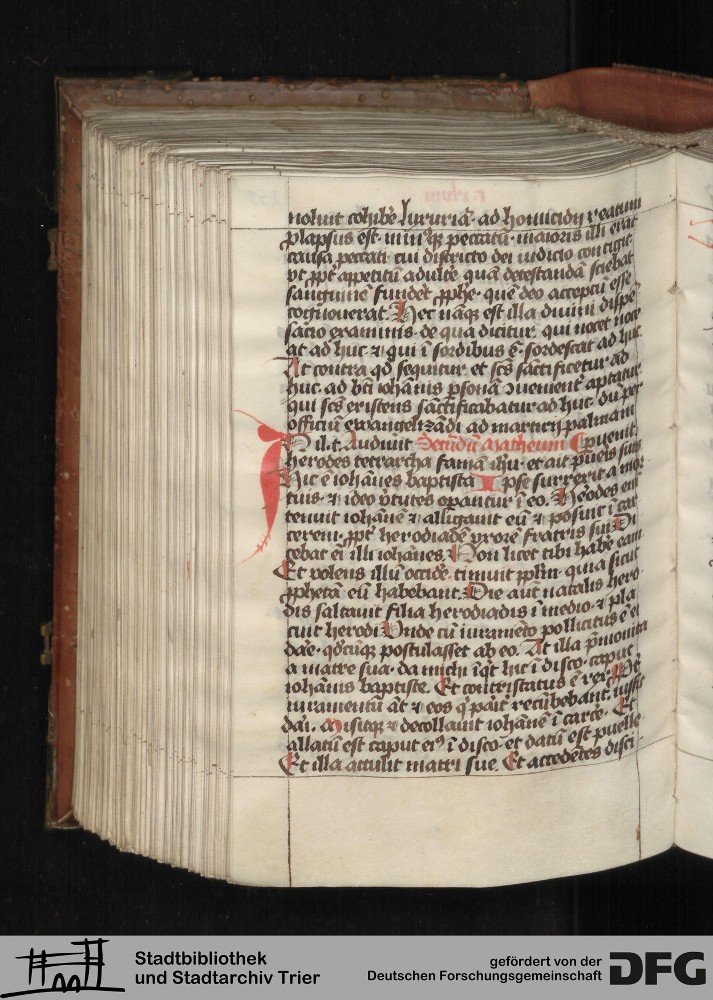 noluit cohibē luxuriā. ad homicidii reatum
plapsus est. minꝰqꝫ peccatū. maioris illi erat
causa peccati. cui districto dei iudicio contigit
vt ꝓpt̄ appetitū adultē. quā detestandā sciebat
sanguinē fundēt ꝓphe. quē deo acceptū esse
cognouerat. Hec nāqꝫ est illa diuini dispē
satio examinis. de qua dicitur. qui nocet noce
at ad huc. ⁊ qui ī sordibus ē. sordescat ad huc
At contra qd̄ sequitur. et scs̄ sāctificetur ad
huc. ad bt̄i iohānis ꝑsonā ↄuenient̄ aptatur
qui scs̄ existens sāctificabatur ad huc. dū ꝑ
officiū ewangelizādi ad martirij palmam
In il. t. Audiuit Secūdū Matheum ꝑuenit.
herodes tetrarcha famā ihū. et ait pueris suis
Hic ē iohānes baptista Ipse surrexit a mor
tuis. ⁊ ideo v̄tutes oꝑantur ī eo. Hērodes em̄
tenuit iohānē ⁊ alligauit eū ⁊ posuit ī car
cerem. ꝓpt̄ herodiadē vxorē fratris sui Di
cebat em̄ illi iohānes. Non licet tibi habē eam
Et volens illū occidē. timuit ppl̄m. quia sicut
ꝓphetā eū habebant. Die aut̄ natalis hero
dis saltauit filia herodiadis ī medio. ⁊ pla
cuit herodi Unde cū iuramēto pollicitus ē ei
daē. qd̄cūqꝫ postulasset ab eo. At illa p̄monita
a matre sua. da michi īqt̄ hic ī disco. caput
iohānis baptiste. Et contristatus ē rex Pꝓt̄
iuramentū āt ⁊ eos q̄ pait̄ recūbebant. iussit
daī. Misitqꝫ ⁊ decollauit iohānē ī carcē. Et
allatū est caput eiꝰ ī disco. et datū est puelle
Et illa attulit matri sue. Et accedētes disci
Stadtbibliothek
und Stadtarchiv Trier
gefördert von der
Deutschen Forschungsgemeinschaft
DFG